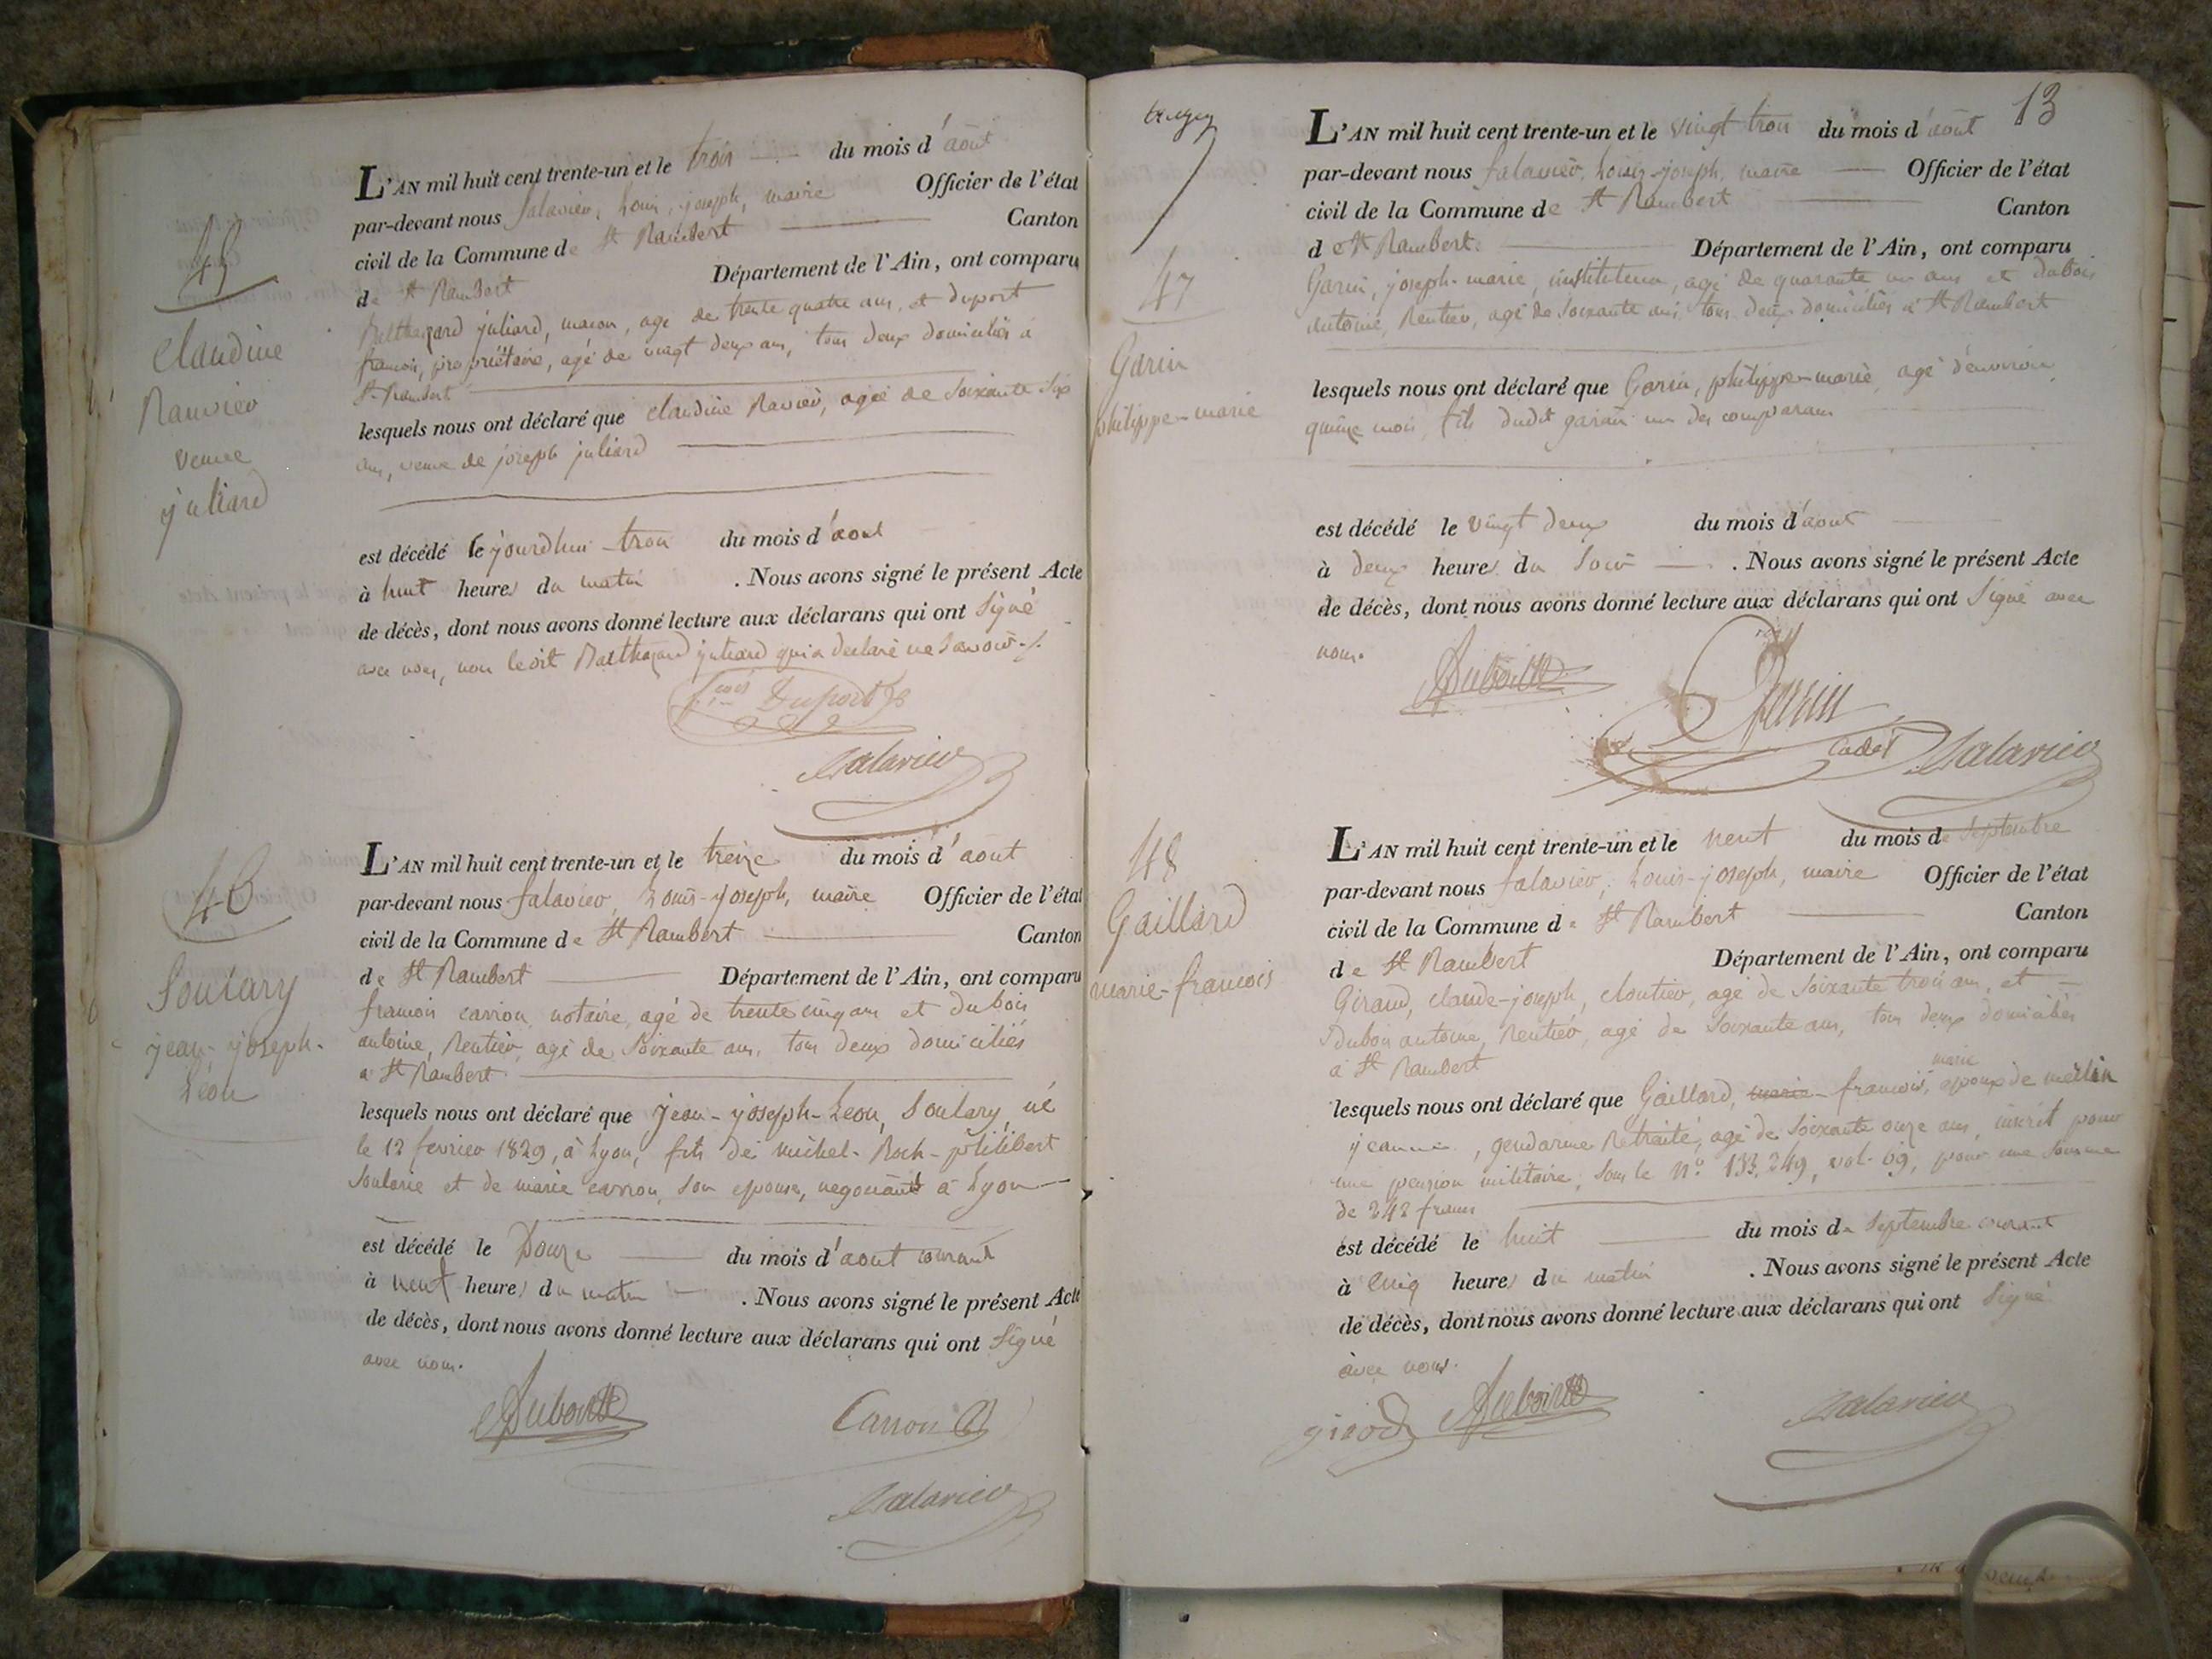 45
Claudine
Ravier
veuve
juliard
L'AN mil huit cent trente-un et le trois du mois d'août
par-devant nous falavier, Louis, joseph, maire Officier de l'état
civil de la Commune de St Rambert Canton
de St Rambert Département de l'Ain, ont comparu
Balthazard juliard, macon, agé de trente quatre ans, et duport
francois, propriétaire, agé de vingt deux ans, tous deux domiciliés à
St Rambert
lesquels nous ont déclaré que claudine Ravier, agée de soixante six
ans, veuve de joseph juliard
est décédé le jourdhui trois du mois d'aout
à huit heures du matin . Nous avons signé le présent Acte
de décès, dont nous avons donné lecture aux déclarans qui ont signé
avec nous, non ledit Balthazard juliard qui a declaré ne savoir
Duport
falavier
46
Soulary
jean-joseph-
Léon
L'AN mil huit cent trente-un et le treize du mois d'aout
par-devant nous falavier, Louis-joseph, maire Officier de l'état
civil de la Commune de St Rambert Canton
de St Rambert Département de l'Ain, ont comparu
francois carron, notaire, agé de trente cinq ans et dubois
antoine, Rentier, agé de soixante ans, tous deux domiciliés
à St Rambert
lesquels nous ont déclaré que jean-joseph-Leon, Soulary, né
le 12 fevrier 1829, à Lyon, fils de michel-Roch-philibert
Soularie et de marie carron, son epouse, negociants à Lyon
est décédé le Douze du mois d'aout courant
à neuf heures du matin . Nous avons signé le présent Acte
de décès, dont nous avons donné lecture aux déclarans qui ont signé
avec nous.
Dubois
Carron
falavier
13
treizy
47
Garin
philippe-marie
L'AN mil huit cent trente-un et le vingt trois du mois d'août
par-devant nous falavier, Louis-joseph, maire Officier de l'état
civil de la Commune de St Rambert Canton
de St Rambert Département de l'Ain, ont comparu
Garin, joseph-marie, instituteur, agé de quarante un ans et dubois
antoine, Rentier, agé de soixante ans, tous deux domiciliés à St Rambert
lesquels nous ont déclaré que Garin, philippe-marie, agé d'environ
quinze mois, fils dudit garin un des comparans
est décédé le vingt deux du mois d'aout
à deux heures du soir . Nous avons signé le présent Acte
de décès, dont nous avons donné lecture aux déclarans qui ont signé avec
nous.
Dubois
Garin
cadet
falavier
48
Gaillard
marie-francois
L'AN mil huit cent trente-un et le neuf du mois de septembre
par-devant nous falavier, Louis-joseph, maire Officier de l'état
civil de la Commune de St Rambert Canton
de St Rambert Département de l'Ain, ont comparu
Giraud, claude-joseph, cloutier, agé de soixante trois ans, et
Dubois antoine, Rentier, agé de soixante ans, tous deux domiciliés
à St Rambert
marie
lesquels nous ont déclaré que Gaillard, marie-francois, epoux de merlin
jeanne, gendarme Retraité, agé de soixante onze ans, inscrit pour
une pension militaire, sous le n° 133,249, vol. 69, pour une somme
de 242 francs
est décédé le huit du mois de septembre courant
à cinq heures du matin . Nous avons signé le présent Acte
de décès, dont nous avons donné lecture aux déclarans qui ont signé
avec nous.
girod
Dubois
falavier